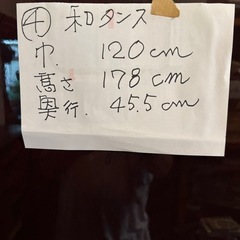 ④ 和タンス
巾. 120cm
高さ 178cm
奥行. 45.5cm